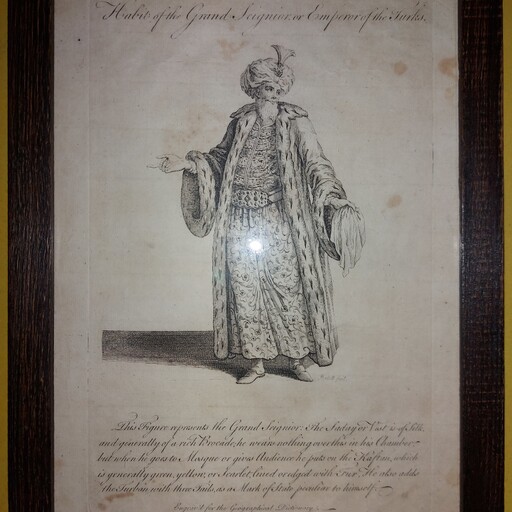 Habit of the Grand Seignior, or Emperor of the Turks.
This Figure represents the Grand Seignior. The Sadary or Vest is of Silk,
and generally of a rich Brocade, he wears nothing over this in his Chamber,
but when he goes to Mosque or gives Audience he puts on the Kaftan, which
is generally green, yellow, or Scarlet, lined or edged with Fur. He also adds
the Turban with three Tails, as a Mark of State peculiar to himself.
Engrav'd for the Geographical Dictionary.